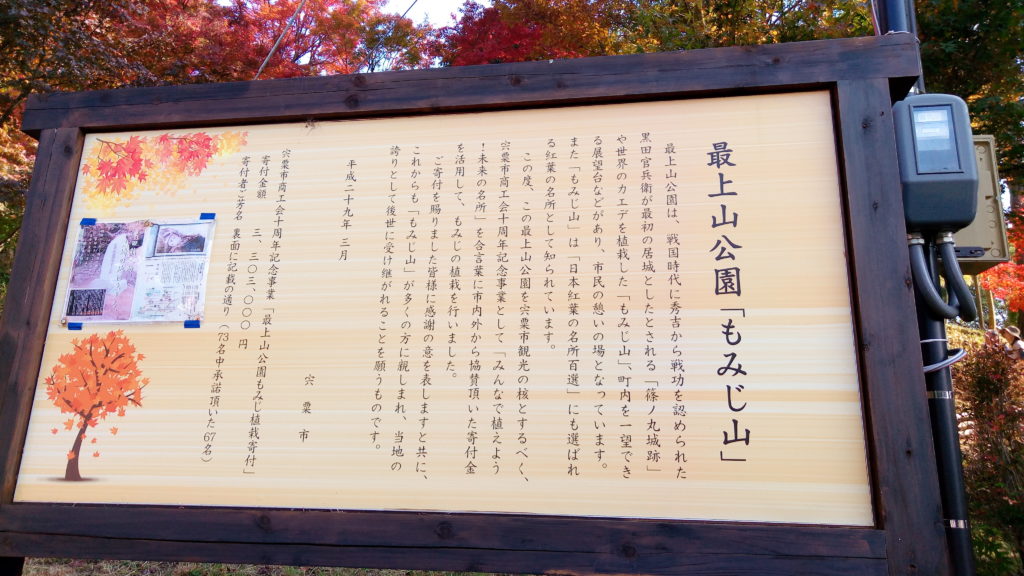 最上山公園「もみじ山」
最上山公園は、戦国時代に秀吉から戦功を認められた
黒田官兵衛が最初の居城としたとされる「篠ノ丸城跡」
や世界のカエデを植栽した「もみじ山」、町内を一望でき
る展望台などがあり、市民の憩いの場となっています。
また「もみじ山」は「日本紅葉の名所百選」にも選ばれ
る紅葉の名所として知られています。
この度、この最上山公園を宍粟市観光の核とするべく、
宍粟市商工会十周年記念事業として「みんなで植えよう
!未来の名所」を合言葉に市内外から協賛頂いた寄付金
を活用して、もみじの植栽を行いました。
ご寄付を賜りました皆様に感謝の意を表しますと共に、
これからも「もみじ山」が多くの方に親しまれ、当地の
誇りとして後世に受け継がれることを願うものです。
平成二十九年 三月
宍粟市
宍粟市商工会十周年記念事業「最上山公園もみじ植栽寄付」
寄付金額 三、三〇三、〇〇〇円
寄付者ご芳名 裏面に記載の通り(73名中承諾頂いた67名)